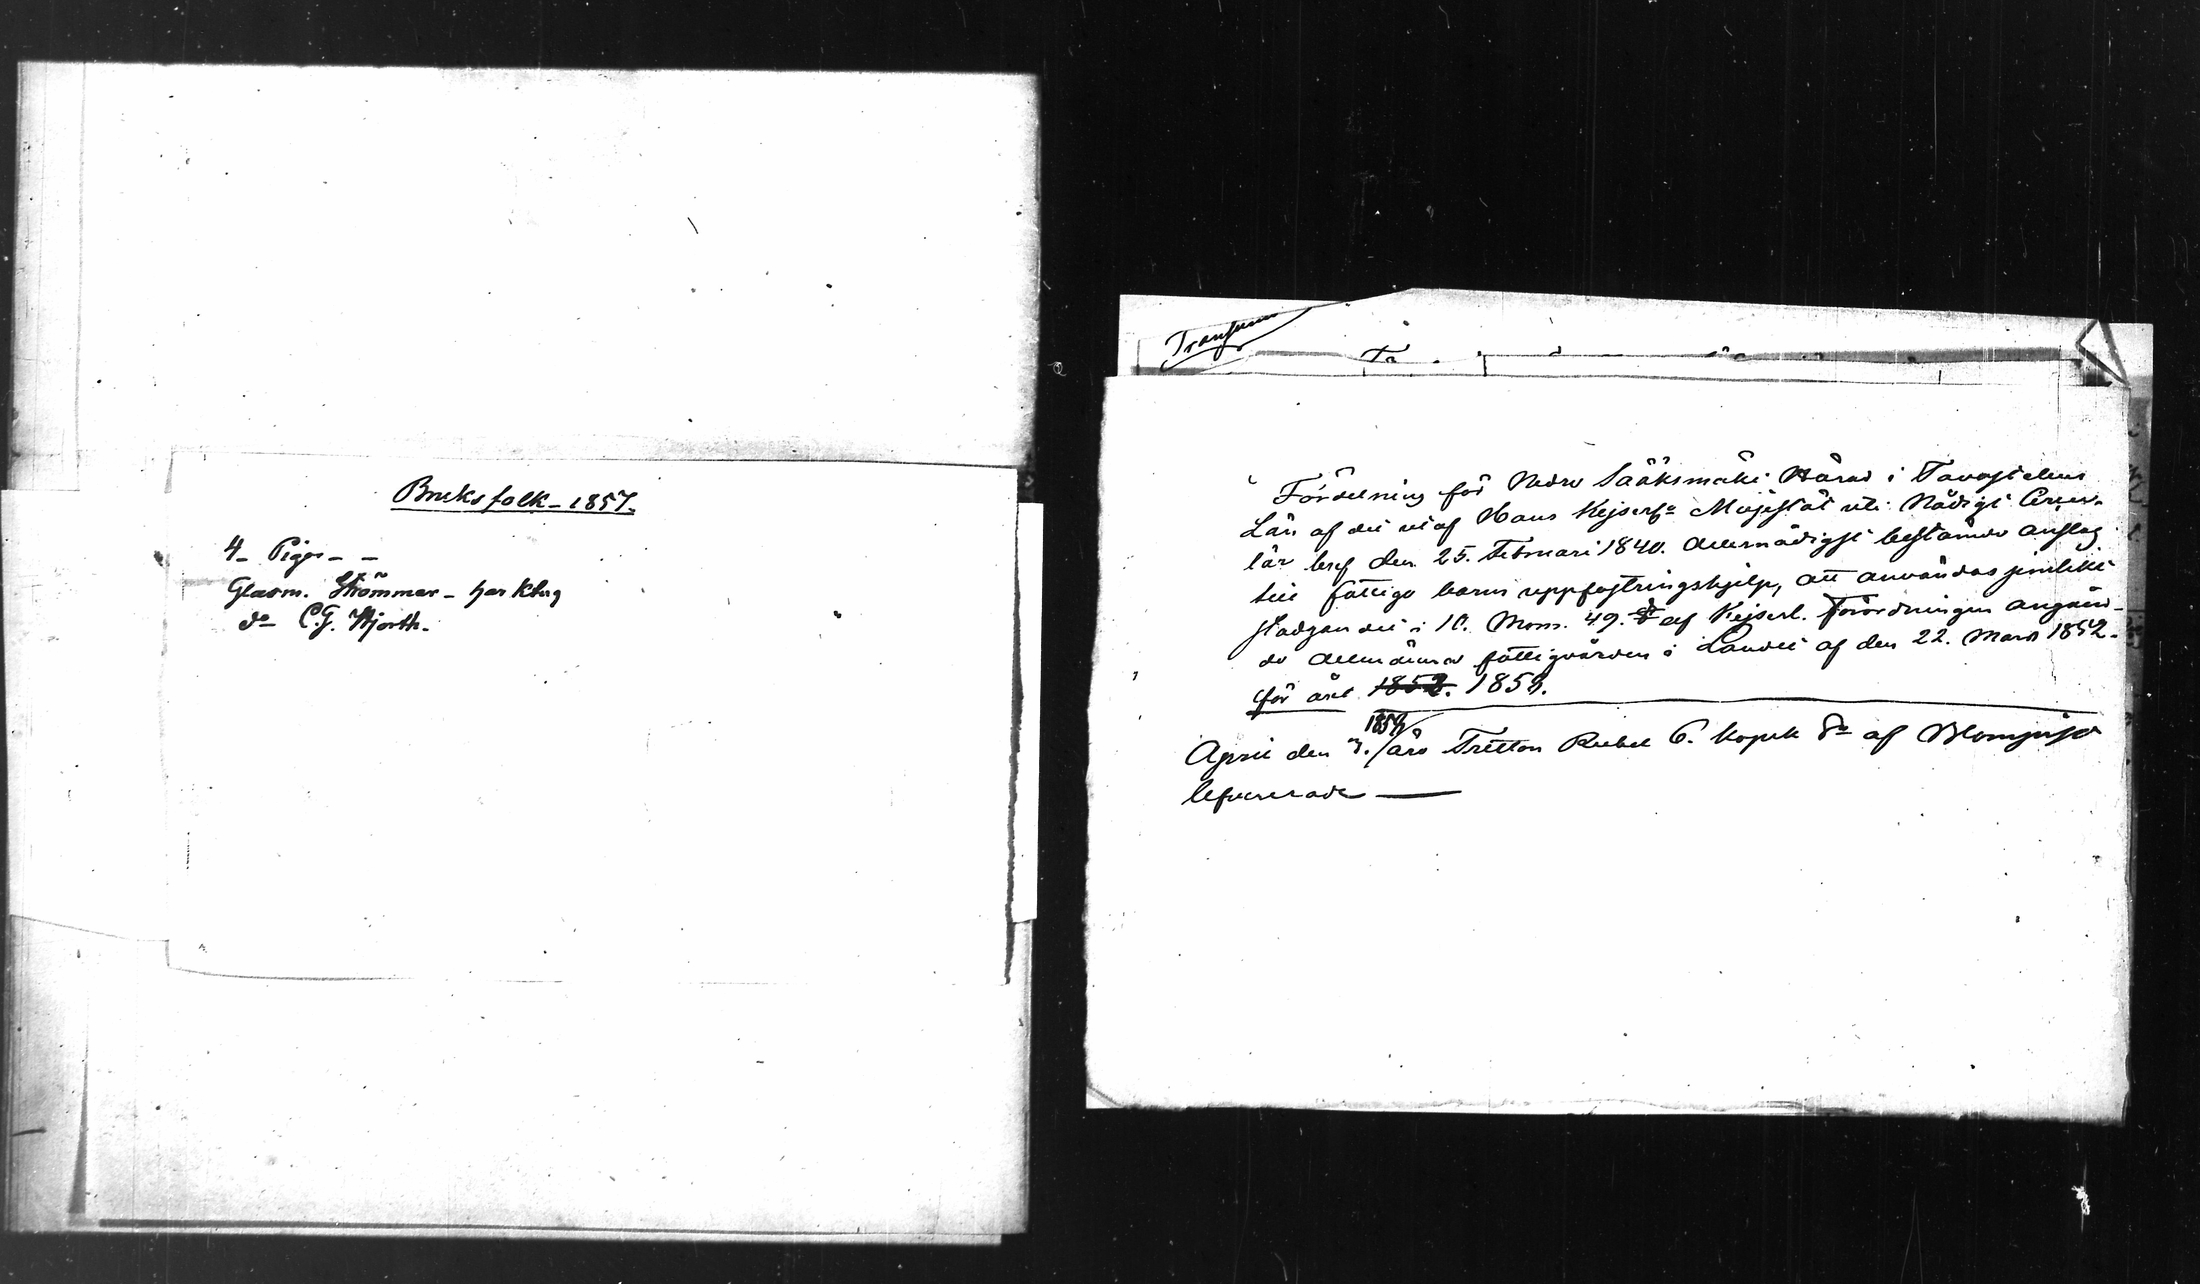 Bruksfolk - 1857.
4 - Pigor - -
Glasm. Strömmer - har Kbrg
do C. G. Hjorth.
Transsumt
Fördelning för Nedre Sääksmäki Härad i Tavastehus
Län af det utaf Hans Kejserl. Majestät uti Nådigt Circu-
lär bref den 25. Februari 1840. Allernådigst bestämda anslag
till fattiga barns uppfostringshjelp, att användas jemlikt
stadgandet i 10. Mom. 49. § af Kejserl. Förordningen angåen-
de Allmänna fattigvården i Landet af den 22. Mars 1852.
för året 1852. 1858.
1858
April den 3. / års Tretton Rubel 6. Kopek Sr af
lefvererade —